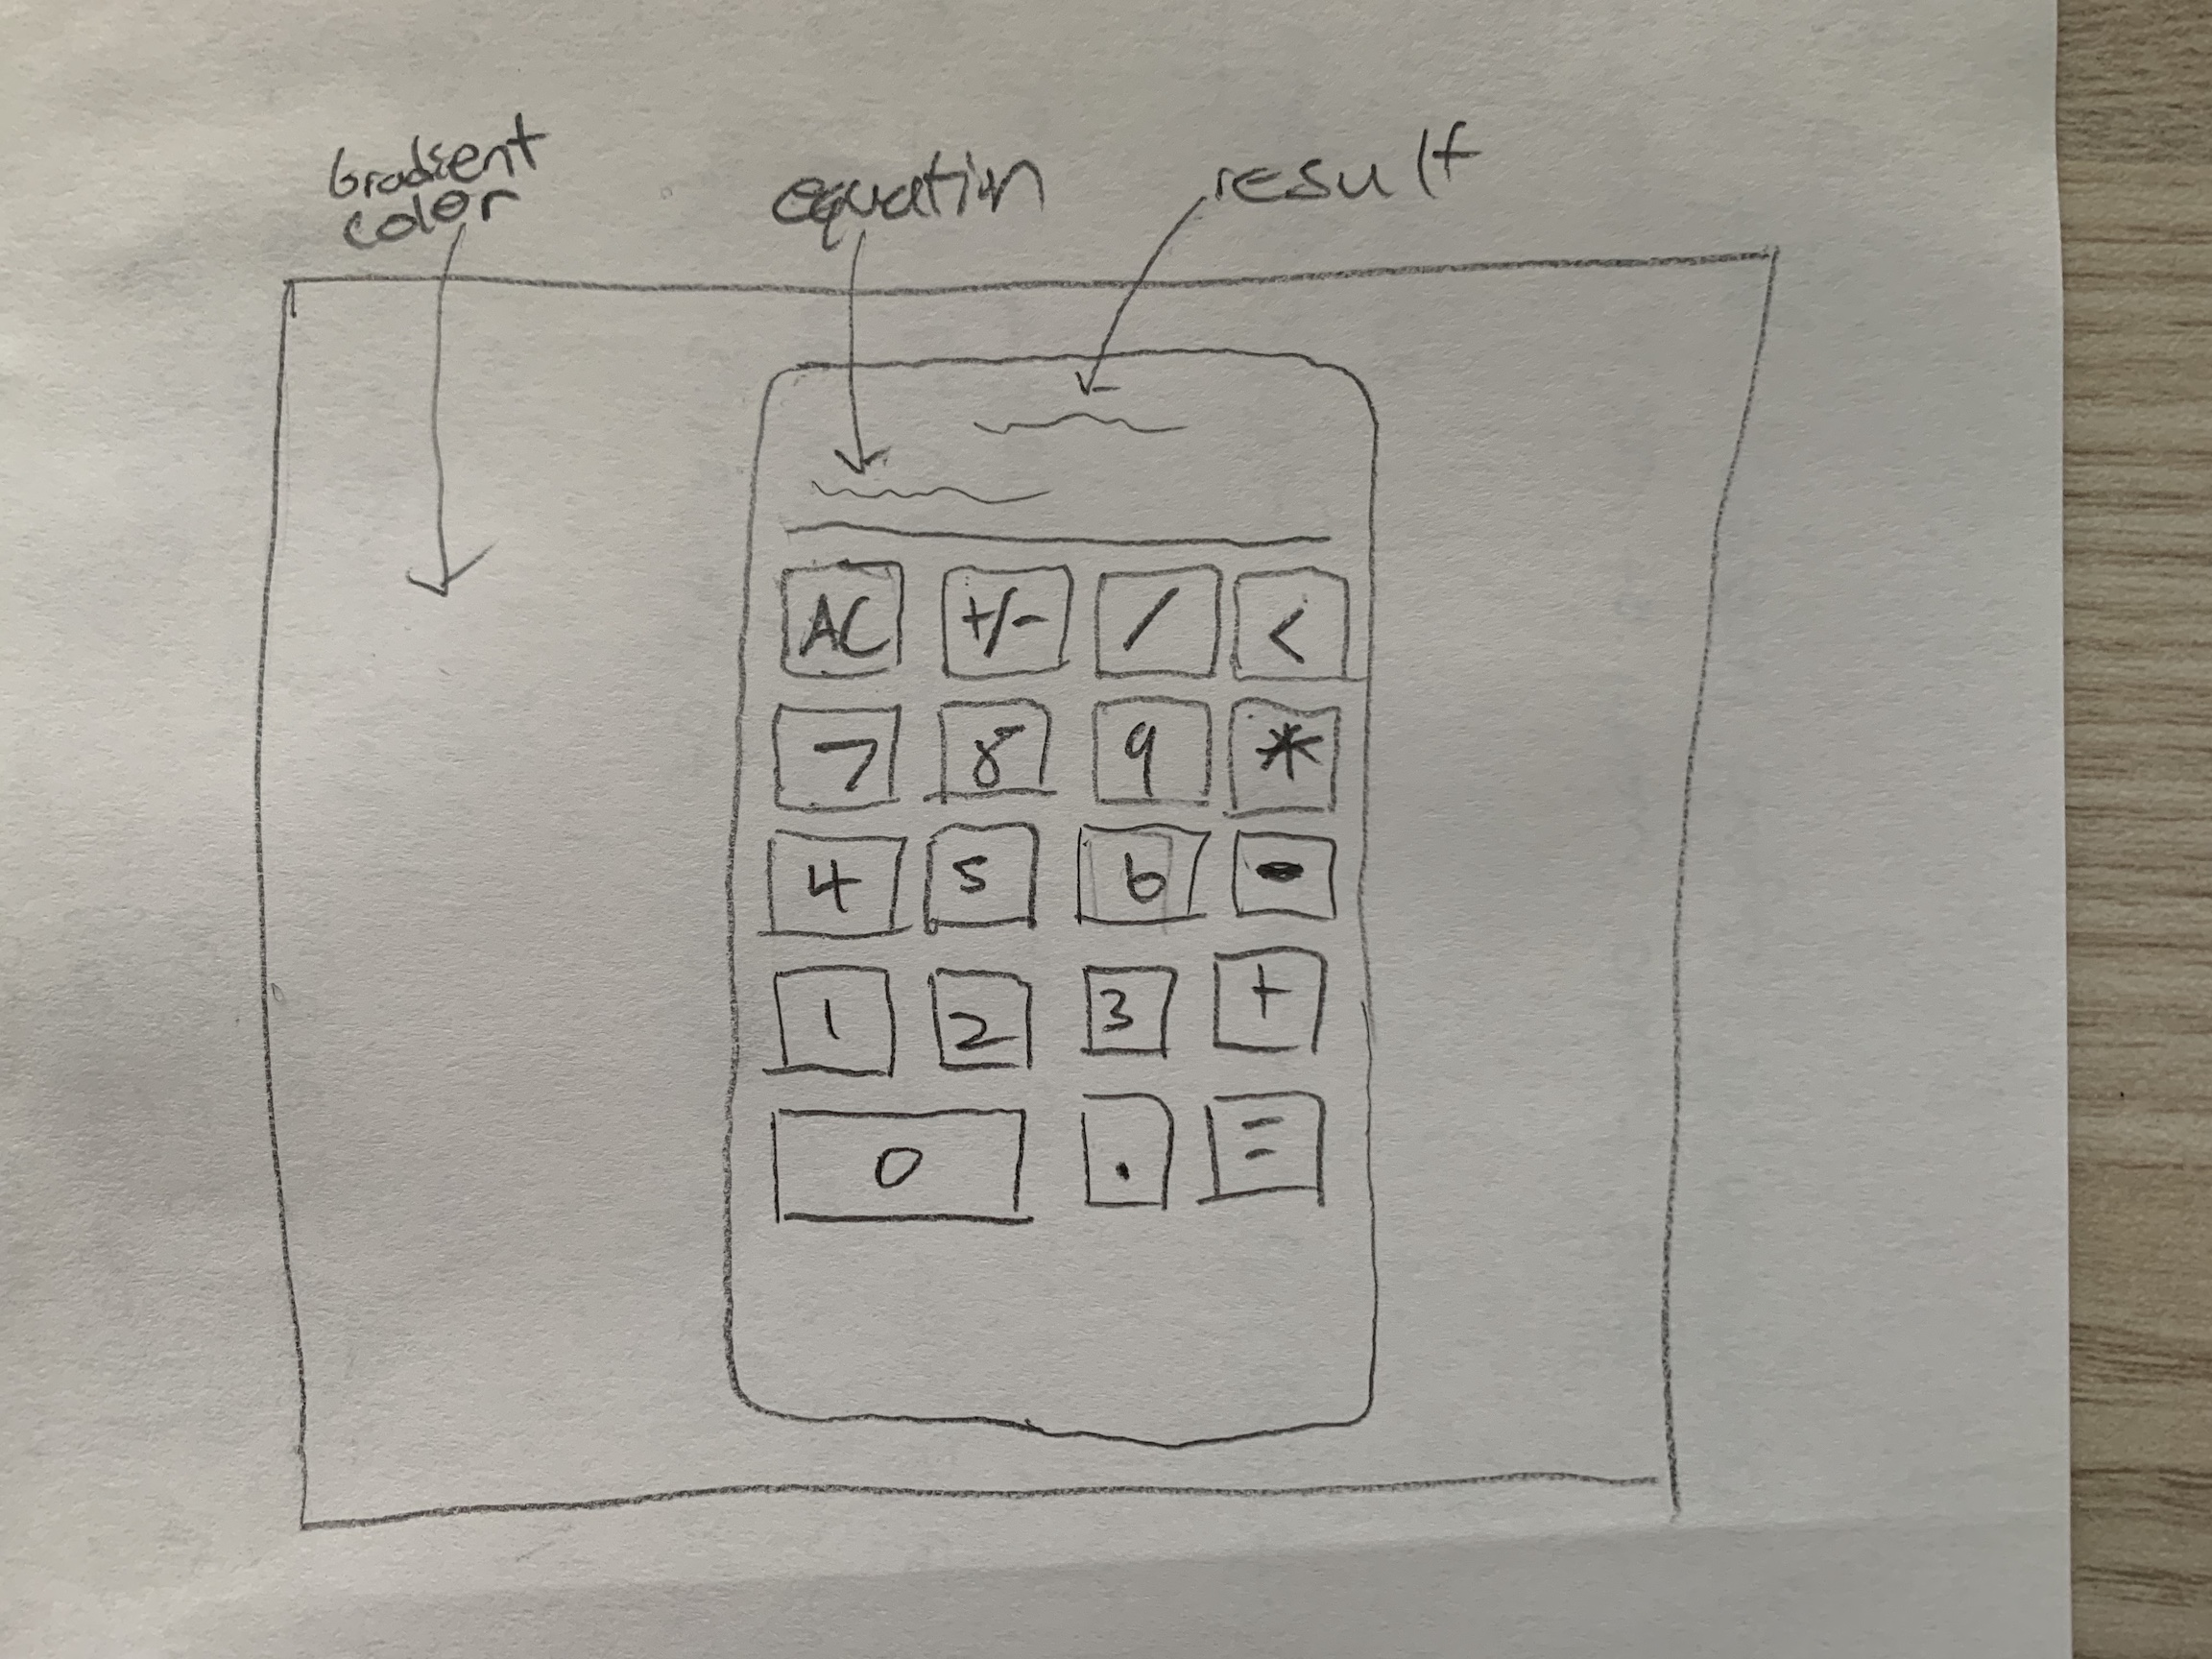 Gradient
color
equation
result
AC +/- / <
7 8 9 *
4 5 6 -
1 2 3 +
0 . =